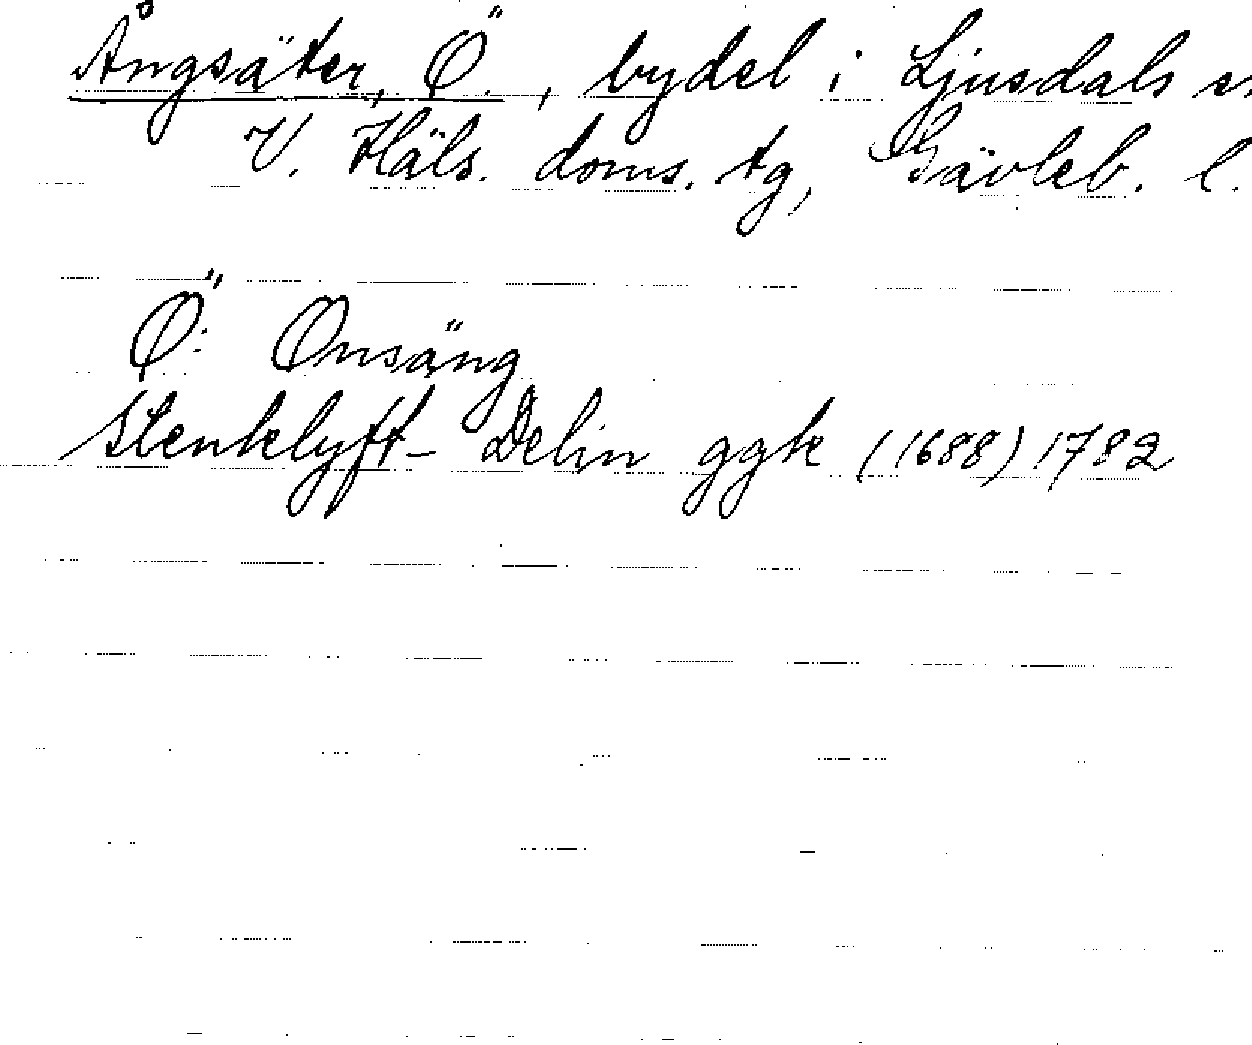 Ångsäter, Ö., bydel i Ljusdals sn
V. Häls. doms. tg, Gävleb. l.
Ö: Onsäng
Stenklyft- Delin ggk (1688) 1782